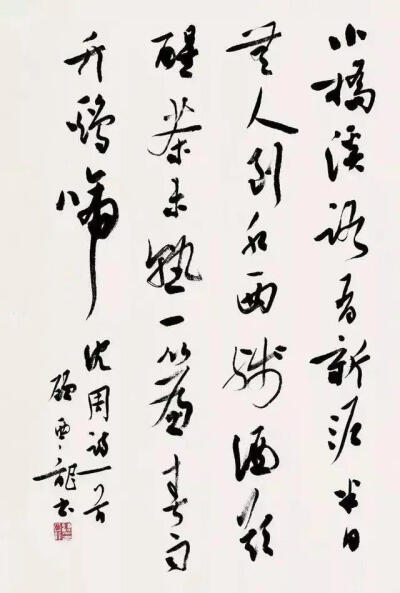 小橋溪路有新泥半日
無人到水西残酒欲
醒茶未熟一簾春雨
竹鷄啼
沈周詩一首
雲龍書